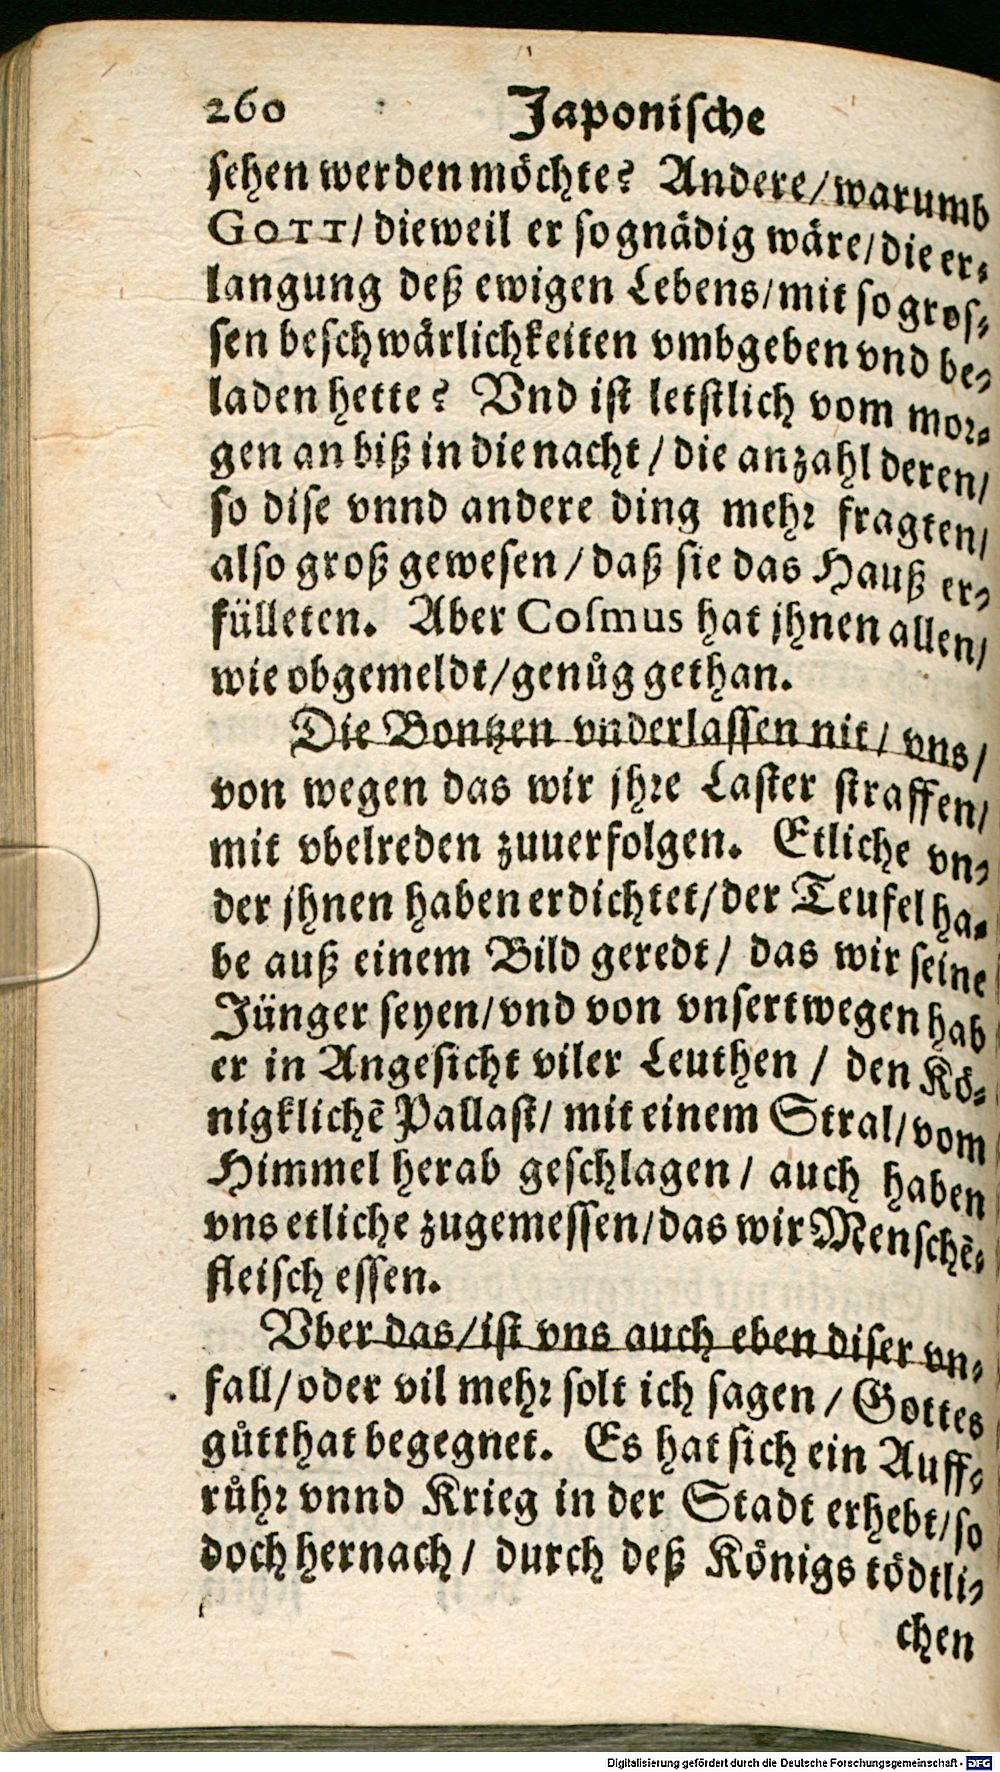 260 Japonische
sehen werden möchte? Andere/warumb
GOTT/ dieweil er so gnädig wäre/die er-
langung deß ewigen Lebens/mit so gros-
sen beschwärlichkeiten vmbgeben vnd be-
laden hette? Vnd ist letstlich vom mor-
gen an biß in die nacht / die anzahl deren/
so dise vnnd andere ding mehr fragten/
also groß gewesen / daß sie das Hauß er-
fülleten. Aber Cosmus hat jhnen allen/
wie obgemeldt/genůg gethan.
Die Bontzen vnderlassen nit/ vns/
von wegen das wir jhre Laster straffen/
mit vbelreden zuuerfolgen. Etliche vn-
der jhnen haben erdichtet/der Teufel ha-
be auß einem Bild geredt/ das wir seine
Jünger seyen/vnd von vnsertwegen hab
er in Angesicht viler Leuthen / den Kö-
nigklichẽ Pallast/ mit einem Stral/vom
Himmel herab geschlagen / auch haben
vns etliche zugemessen/das wir Menschẽ-
fleisch essen.
Vber das/ist vns auch eben diser vn-
fall/oder vil mehr solt ich sagen / Gottes
gůtthat begegnet. Es hat sich ein Auff-
růhr vnnd Krieg in der Stadt erhebt/so
doch hernach/ durch deß Königs tödtli-
chen
Digitalisierung gefördert durch die Deutsche Forschungsgemeinschaft - DFG